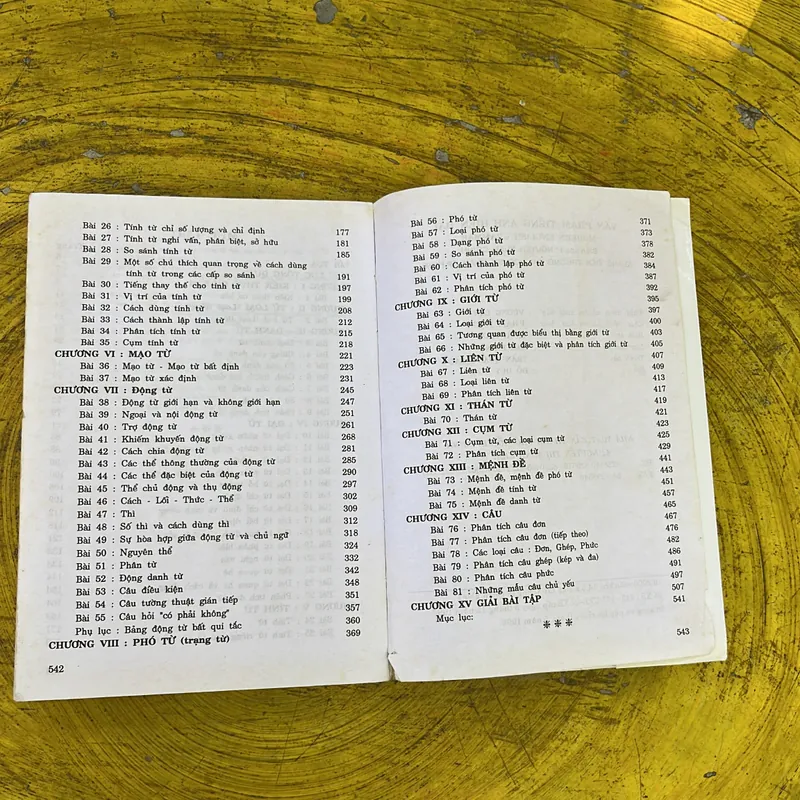 Bài 26 : Tính từ chỉ số lượng và chỉ định 177
Bài 27 : Tính từ nghi vấn, phân biệt, sở hữu 181
Bài 28 : So sánh tính từ 185
Bài 29 : Một số chú thích quan trọng về cách dùng
tính từ trong các cấp so sánh 191
Bài 30 : Tiếng thay thế cho tính từ 197
Bài 31 : Vị trí của tính từ 199
Bài 32 : Cách dùng tính từ 208
Bài 33 : Cách thành lập tính từ 212
Bài 34 : Phân tích tính từ 215
Bài 35 : Cụm tính từ 218
CHƯƠNG VI : MẠO TỪ 221
Bài 36 : Mạo từ - Mạo từ bất định 223
Bài 37 : Mạo từ xác định 231
CHƯƠNG VII : Động từ 245
Bài 38 : Động từ giới hạn và không giới hạn 247
Bài 39 : Ngoại và nội động từ 251
Bài 40 : Trợ động từ 261
Bài 41 : Khiếm khuyến động từ 268
Bài 42 : Cách chia động từ 281
Bài 43 : Các thể thông thường của động từ 285
Bài 44 : Các thể đặc biệt của động từ 290
Bài 45 : Thể chủ động và thụ động 297
Bài 46 : Cách - Lối - Thức - Thể 302
Bài 47 : Thì 309
Bài 48 : Số thì và cách dùng thì 312
Bài 49 : Sự hòa hợp giữa động từ và chủ ngữ 318
Bài 50 : Nguyên thể 324
Bài 51 : Phân từ 332
Bài 52 : Động danh từ 342
Bài 53 : Câu điều kiện 348
Bài 54 : Câu tường thuật gián tiếp 351
Bài 55 : Câu hỏi "có phải không" 357
Phụ lục : Bảng động từ bất qui tắc 360
CHƯƠNG VIII : PHÓ TỪ (trạng từ) 369
542
Bài 56 : Phó từ 371
Bài 57 : Loại phó từ 373
Bài 58 : Dạng phó từ 378
Bài 59 : So sánh phó từ 382
Bài 60 : Cách thành lập phó từ 384
Bài 61 : Vị trí của phó từ 387
Bài 62 : Phân tích phó từ 392
CHƯƠNG IX : GIỚI TỪ 395
Bài 63 : Giới từ 397
Bài 64 : Loại giới từ 400
Bài 65 : Tương quan được biểu thị bằng giới từ 403
Bài 66 : Những giới từ đặc biệt và phân tích giới từ 405
CHƯƠNG X : LIÊN TỪ 407
Bài 67 : Liên từ 409
Bài 68 : Loại liên từ 413
Bài 69 : Phân tích liên từ 417
CHƯƠNG XI : THÁN TỪ 419
Bài 70 : Thán từ 421
CHƯƠNG XII : CỤM TỪ 423
Bài 71 : Cụm từ, các loại cụm từ 425
Bài 72 : Phân tích cụm từ 429
CHƯƠNG XIII : MỆNH ĐỀ 441
Bài 73 : Mệnh đề, mệnh đề phó từ 443
Bài 74 : Mệnh đề tính từ 451
Bài 75 : Mệnh đề danh từ 457
CHƯƠNG XIV : CÂU 465
Bài 76 : Phân tích câu đơn 467
Bài 77 : Phân tích câu đơn (tiếp theo) 476
Bài 78 : Các loại câu : Đơn, Ghép, Phức 482
Bài 79 : Phân tích câu ghép (kép và đa) 486
Bài 80 : Phân tích câu phức 491
Bài 81 : Những mẫu câu chủ yếu 497
CHƯƠNG XV GIẢI BÀI TẬP 507
Mục lục: 541
***
543